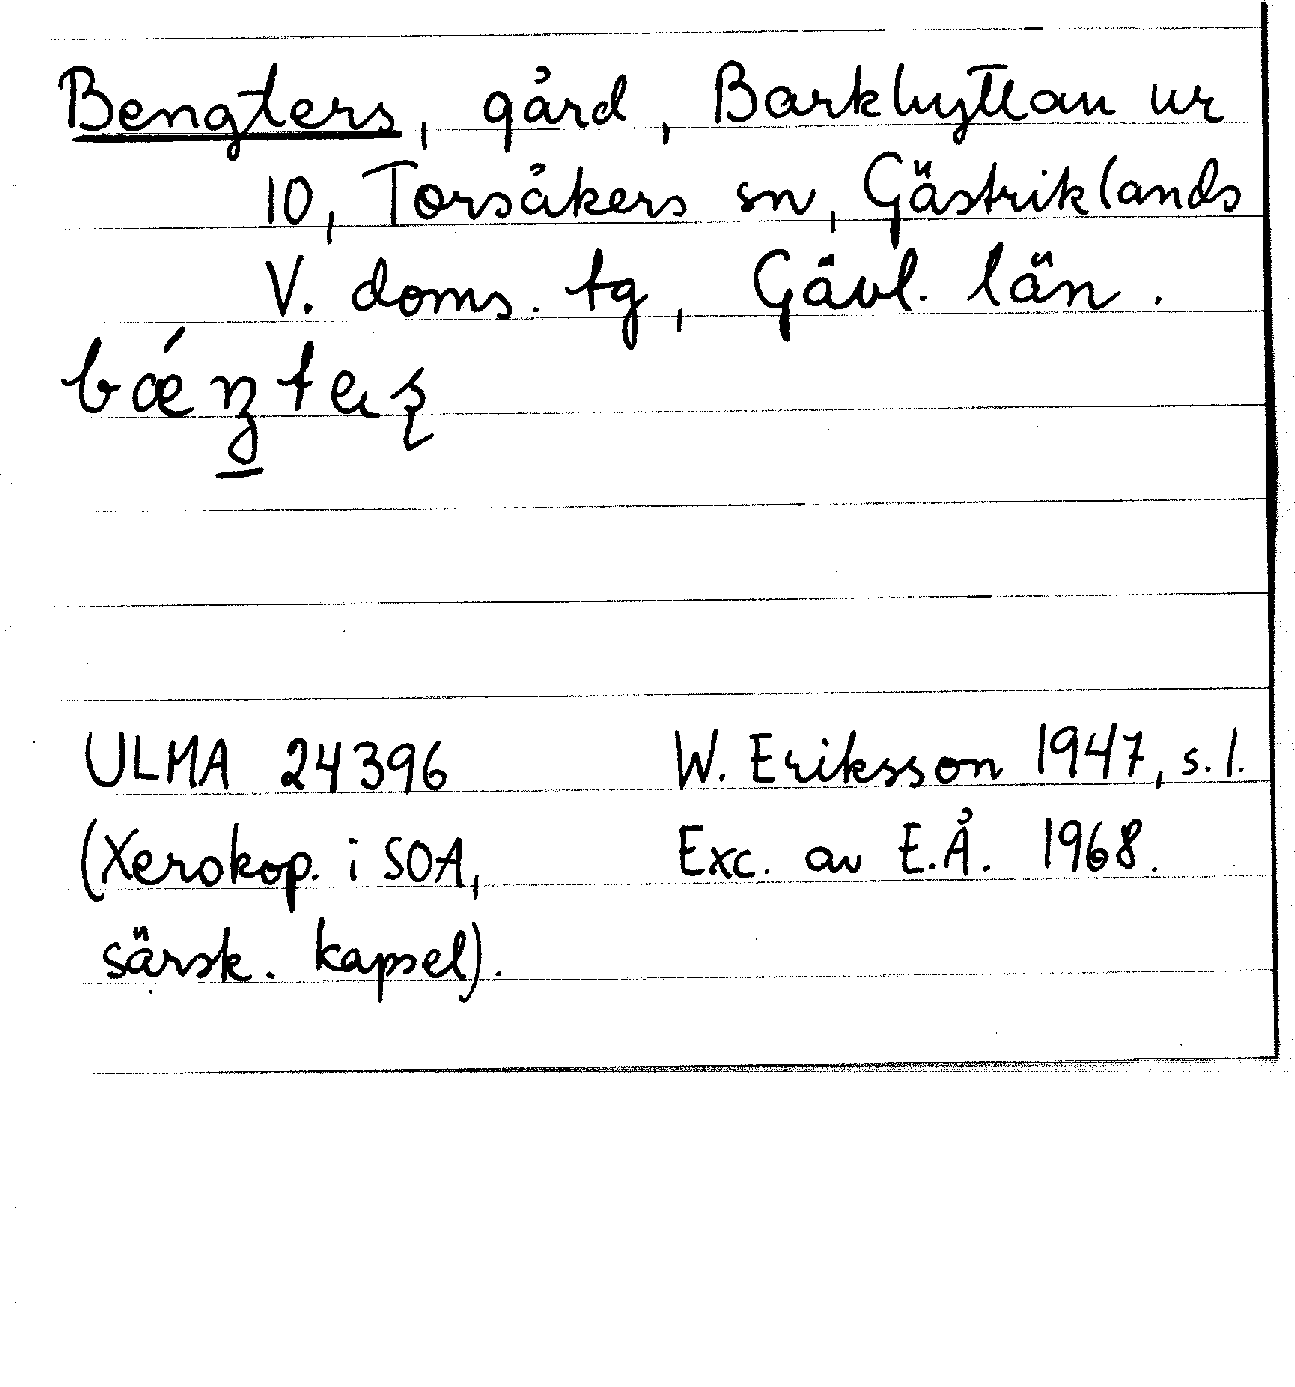 Bengters, gård, Barkhyttan ur
10, Torsåkers sn, Gästriklands
V. doms. tg, Gävl. län.
ULMA 24396 W. Eriksson 1947, s. 1.
(Xerokop. i SOA, Exc. av E.Å. 1968.
särsk. kapsel).